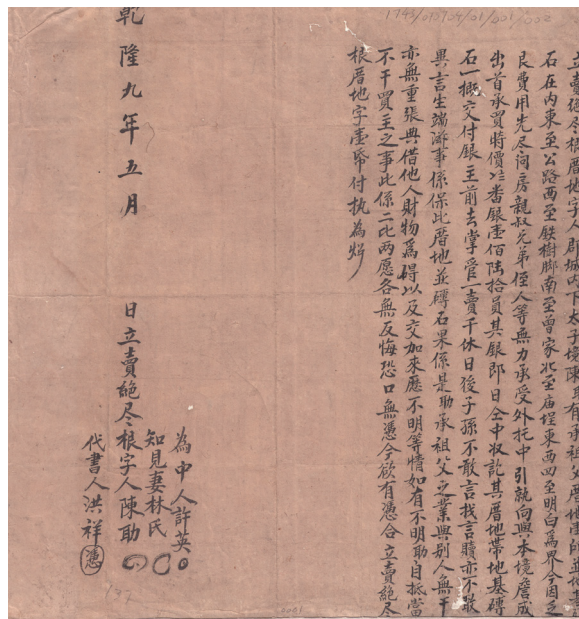 1743/073704/01/001/002
立賣絕尽根厝地字人郡城內下太子境陳助有承祖父厝地
石在內東至公路西至鉄樹脚南至曾家北至庙埕東西四至明白為界今因乏
艮費用先尽问房親叔兄弟侄人等無力承受外托中引就向與本境詹成
出首承買時價番銀壹佰陸拾員其銀即日仝中收訖其厝地帶地基磚
石一概交付銀主前去掌管一賣千休日後子孫不敢言找言贖亦不敢
異言生端滋事係保此厝地並磚石果係是助承祖父之業與别人無干
亦無重張典借他人財物為碍以及交加來歷不明等情如有不明助自抵當
不干買主之事此係二比两愿各無反悔恐口無憑今欲有憑合立賣絕尽
根厝地字壹帋付执為炤
乾隆九年五月 日立賣絕尽根字人陳助
為中人許英
知見妻林氏
代書人洪祥 憑
137
0001